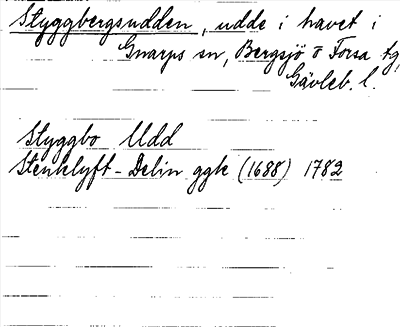 Styggbergsudden, udde i havet i
Gnarps sn, Bergsjö o Forsa tg,
Gävleb. l.
Styggbo Udd
Stenklyft - Delin ggk (1688) 1782